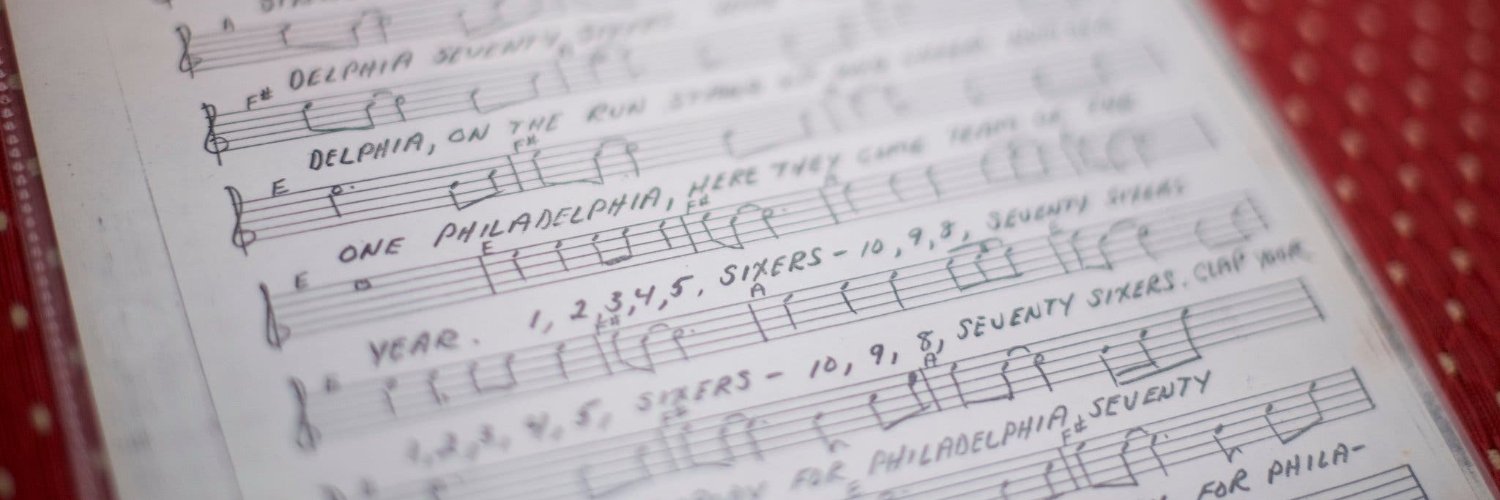 A
DELPHIA SEVENTY
F#
DELPHIA, ON THE RUN
E F#
ONE PHILADELPHIA, HERE THEY COME TEAM OF THE
E E F# A
YEAR. 1, 2, 3, 4, 5, SIXERS - 10, 9, 8, SEVENTY SIXERS
E F# A
1, 2, 3, 4, 5, SIXERS - 10, 9, 8, SEVENTY SIXERS. CLAP YOUR
F# A
FOR PHILADELPHIA, SEVENTY
E F#
FOR PHILA-